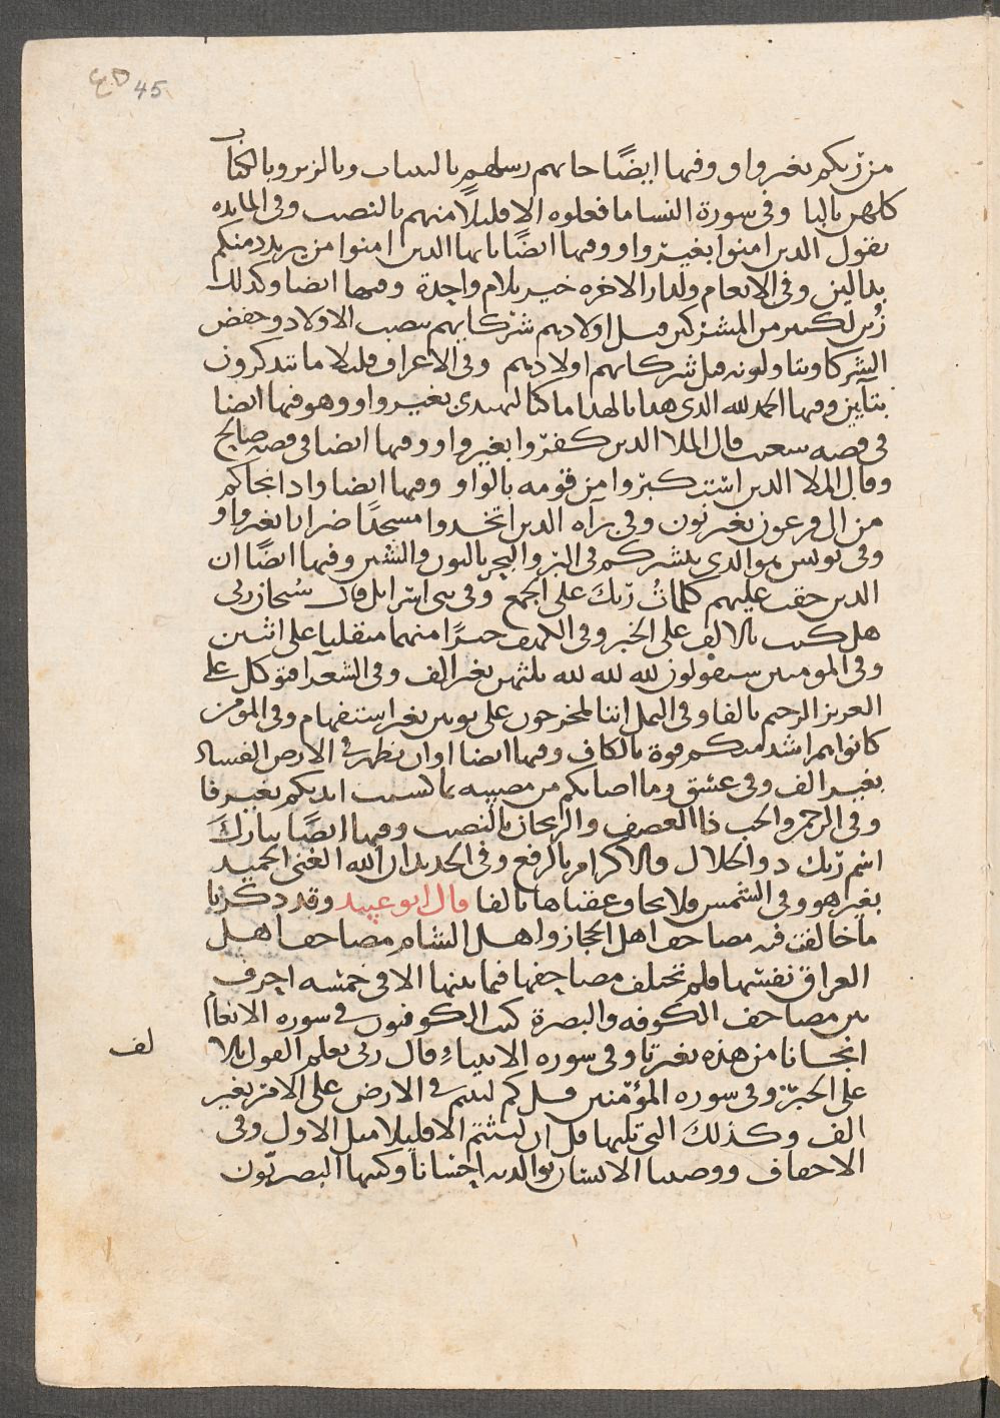 45
من ربكم بغير واو وفيها ايضًا جاتهم رسلهم بالبينات وبالزبر وبالكتاب
كلهن بالبا وفي سورة النسا ما فعلوه الا قليلًا منهم بالنصب وفي المايده
يقول الدين امنوا بغير واو وفيها ايضًا يايها الدين امنوا من يرتدد منكم
بدالين وفي الانعام ولدار الاخره خير بلام واحدة وفيها ايضا وكدلك
زُين لكثير من المشركين قتل اولادهم شركايهم بنصب الاولاد وخفض
الشركا ويتاولونه قتل شركايهم اولادهم وفي الاعراف قليلا ما تتدكرون
بتآين وفيها الحمد لله الدي هدانا لهدا ما كنا لنهتدي بغير واو وهو فيها ايضا
في قصه شعيب قال الملا الدين كفروا بغير واو وفيها ايضا في قصه صالح
وقال الملا الدين استكبروا من قومه بالواو وفيها ايضا واد انجاكم
من ال فرعون بغير نون وفي برآه الدين اتخدوا مسجدًا ضرارا بغير واو
وفي يونس هو الدي ينشركم في البر والبحر بالنون والشين وفيها ايضًا ان
الدين حقت عليهم كلماتُ ربك على الجمع وفي بني اسرايل قال سُبحان ربي
هل كنت بالالف على الخبر وفي الكهف خيرًا منهما منقلبا على اثنين
وفي المومنين سيقولون لله لله لله ثلثهن بغير الف وفي الشعرا فتوكل على
العزيز الرحيم بالفا وفي النمل اننا لمخرجون على نونين بغير استفهام وفي المومن
كانوا هم اشد منكم قوة بالكاف وفيها ايضا او ان يظهر في الارض الفساد
بغير الف وفي عسق وما اصابكم من مصيبه بما كسبت ايديكم بغير فا
وفي الرحمن والحب ذا العصف والريحان بالنصب وفيها ايضًا تبارك
اسم ربك دو الجلال والاكرام بالرفع وفي الحديد ان الله الغني الحميد
بغير هو وفي الشمس فلا يخاف عقباها بالفا قال ابو عبيد وقد دكرنا
ما خالفت فيه مصاحف اهل الحجاز واهل الشام مصاحف اهل
العراق نفسها فلم تختلف مصاحفها فيما بينها الا في خمسه احرف
بين مصاحف الكوفه والبصرة كتب الكوفيون في سوره الانعام
انجانا من هذه بغير تا وفي سوره الانبياء قال ربي يعلم القول بالا
لف
على الخبر وفي سوره المؤمنين قل كم لبثتم في الارض على الامر بغير
الف وكذلك التي تليها قل ان لبثتم الا قليلا مثل الاول وفي
الاحقاف ووصينا الانسان بوالديه احسانا وكتبها البصريون